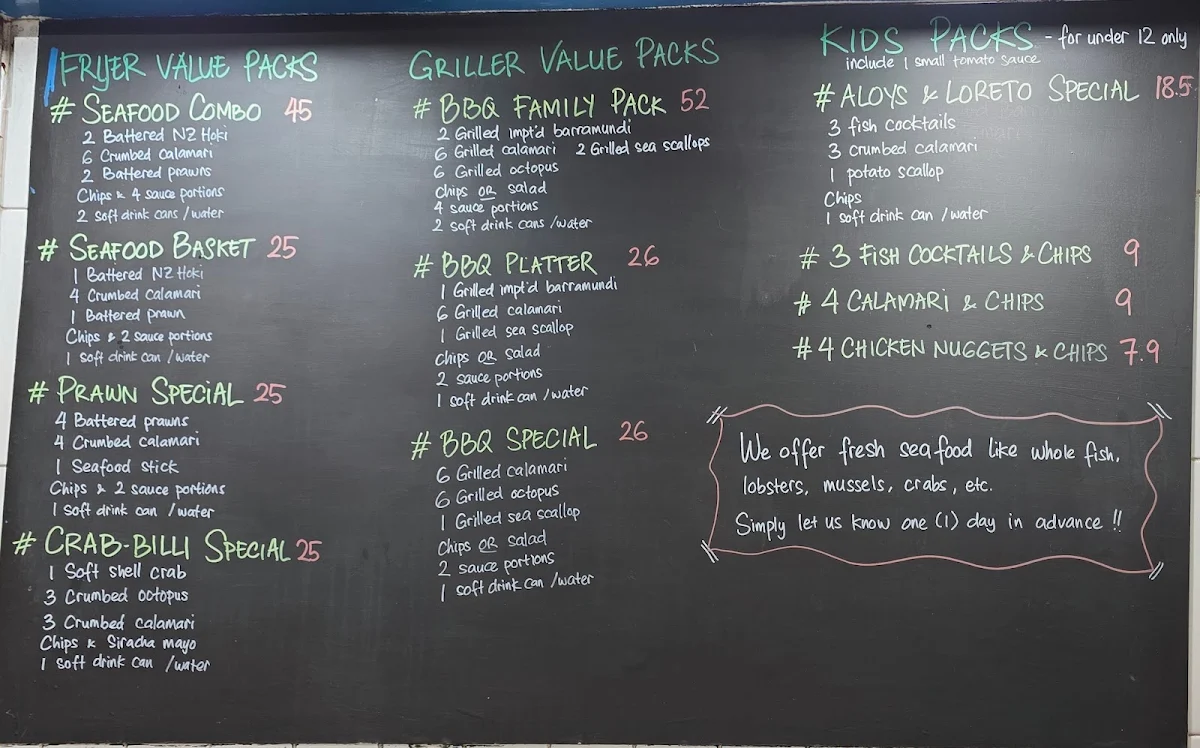 FRYER VALUE PACKS
# SEAFOOD COMBO 45
2 Battered NZ Hoki
6 Crumbed Calamari
2 Battered prawns
Chips & 4 sauce portions
2 soft drink cans / water
# SEAFOOD BASKET 25
1 Battered NZ Hoki
4 Crumbed Calamari
1 Battered prawn
Chips & 2 sauce portions
1 soft drink can / water
# PRAWN SPECIAL 25
4 Battered prawns
4 Crumbed calamari
1 Seafood stick
Chips & 2 sauce portions
1 soft drink can / water
# CRAB-BILLI SPECIAL 25
1 Soft shell crab
3 Crumbed octopus
3 Crumbed calamari
Chips & Siracha mayo
1 soft drink can / water
GRILLER VALUE PACKS
# BBQ FAMILY PACK 52
2 Grilled impt'd barramundi
6 Grilled calamari 2 Grilled sea scallops
6 Grilled octopus
Chips OR salad
4 sauce portions
2 soft drink cans / water
# BBQ PLATTER 26
1 Grilled impt'd barramundi
6 Grilled calamari
1 Grilled sea scallop
Chips OR salad
2 sauce portions
1 soft drink can / water
# BBQ SPECIAL 26
6 Grilled calamari
6 Grilled octopus
1 Grilled sea scallop
Chips OR salad
2 sauce portions
1 soft drink can / water
KIDS PACKS - for under 12 only
include 1 small tomato sauce
# ALOYS & LORETO SPECIAL 18.5
3 fish cocktails
3 crumbed calamari
1 potato scallop
Chips
1 soft drink can / water
# 3 FISH COCKTAILS & CHIPS 9
# 4 CALAMARI & CHIPS 9
# 4 CHICKEN NUGGETS & CHIPS 7.9
We offer fresh seafood like whole fish,
lobsters, mussels, crabs, etc.
Simply let us know one (1) day in advance !!